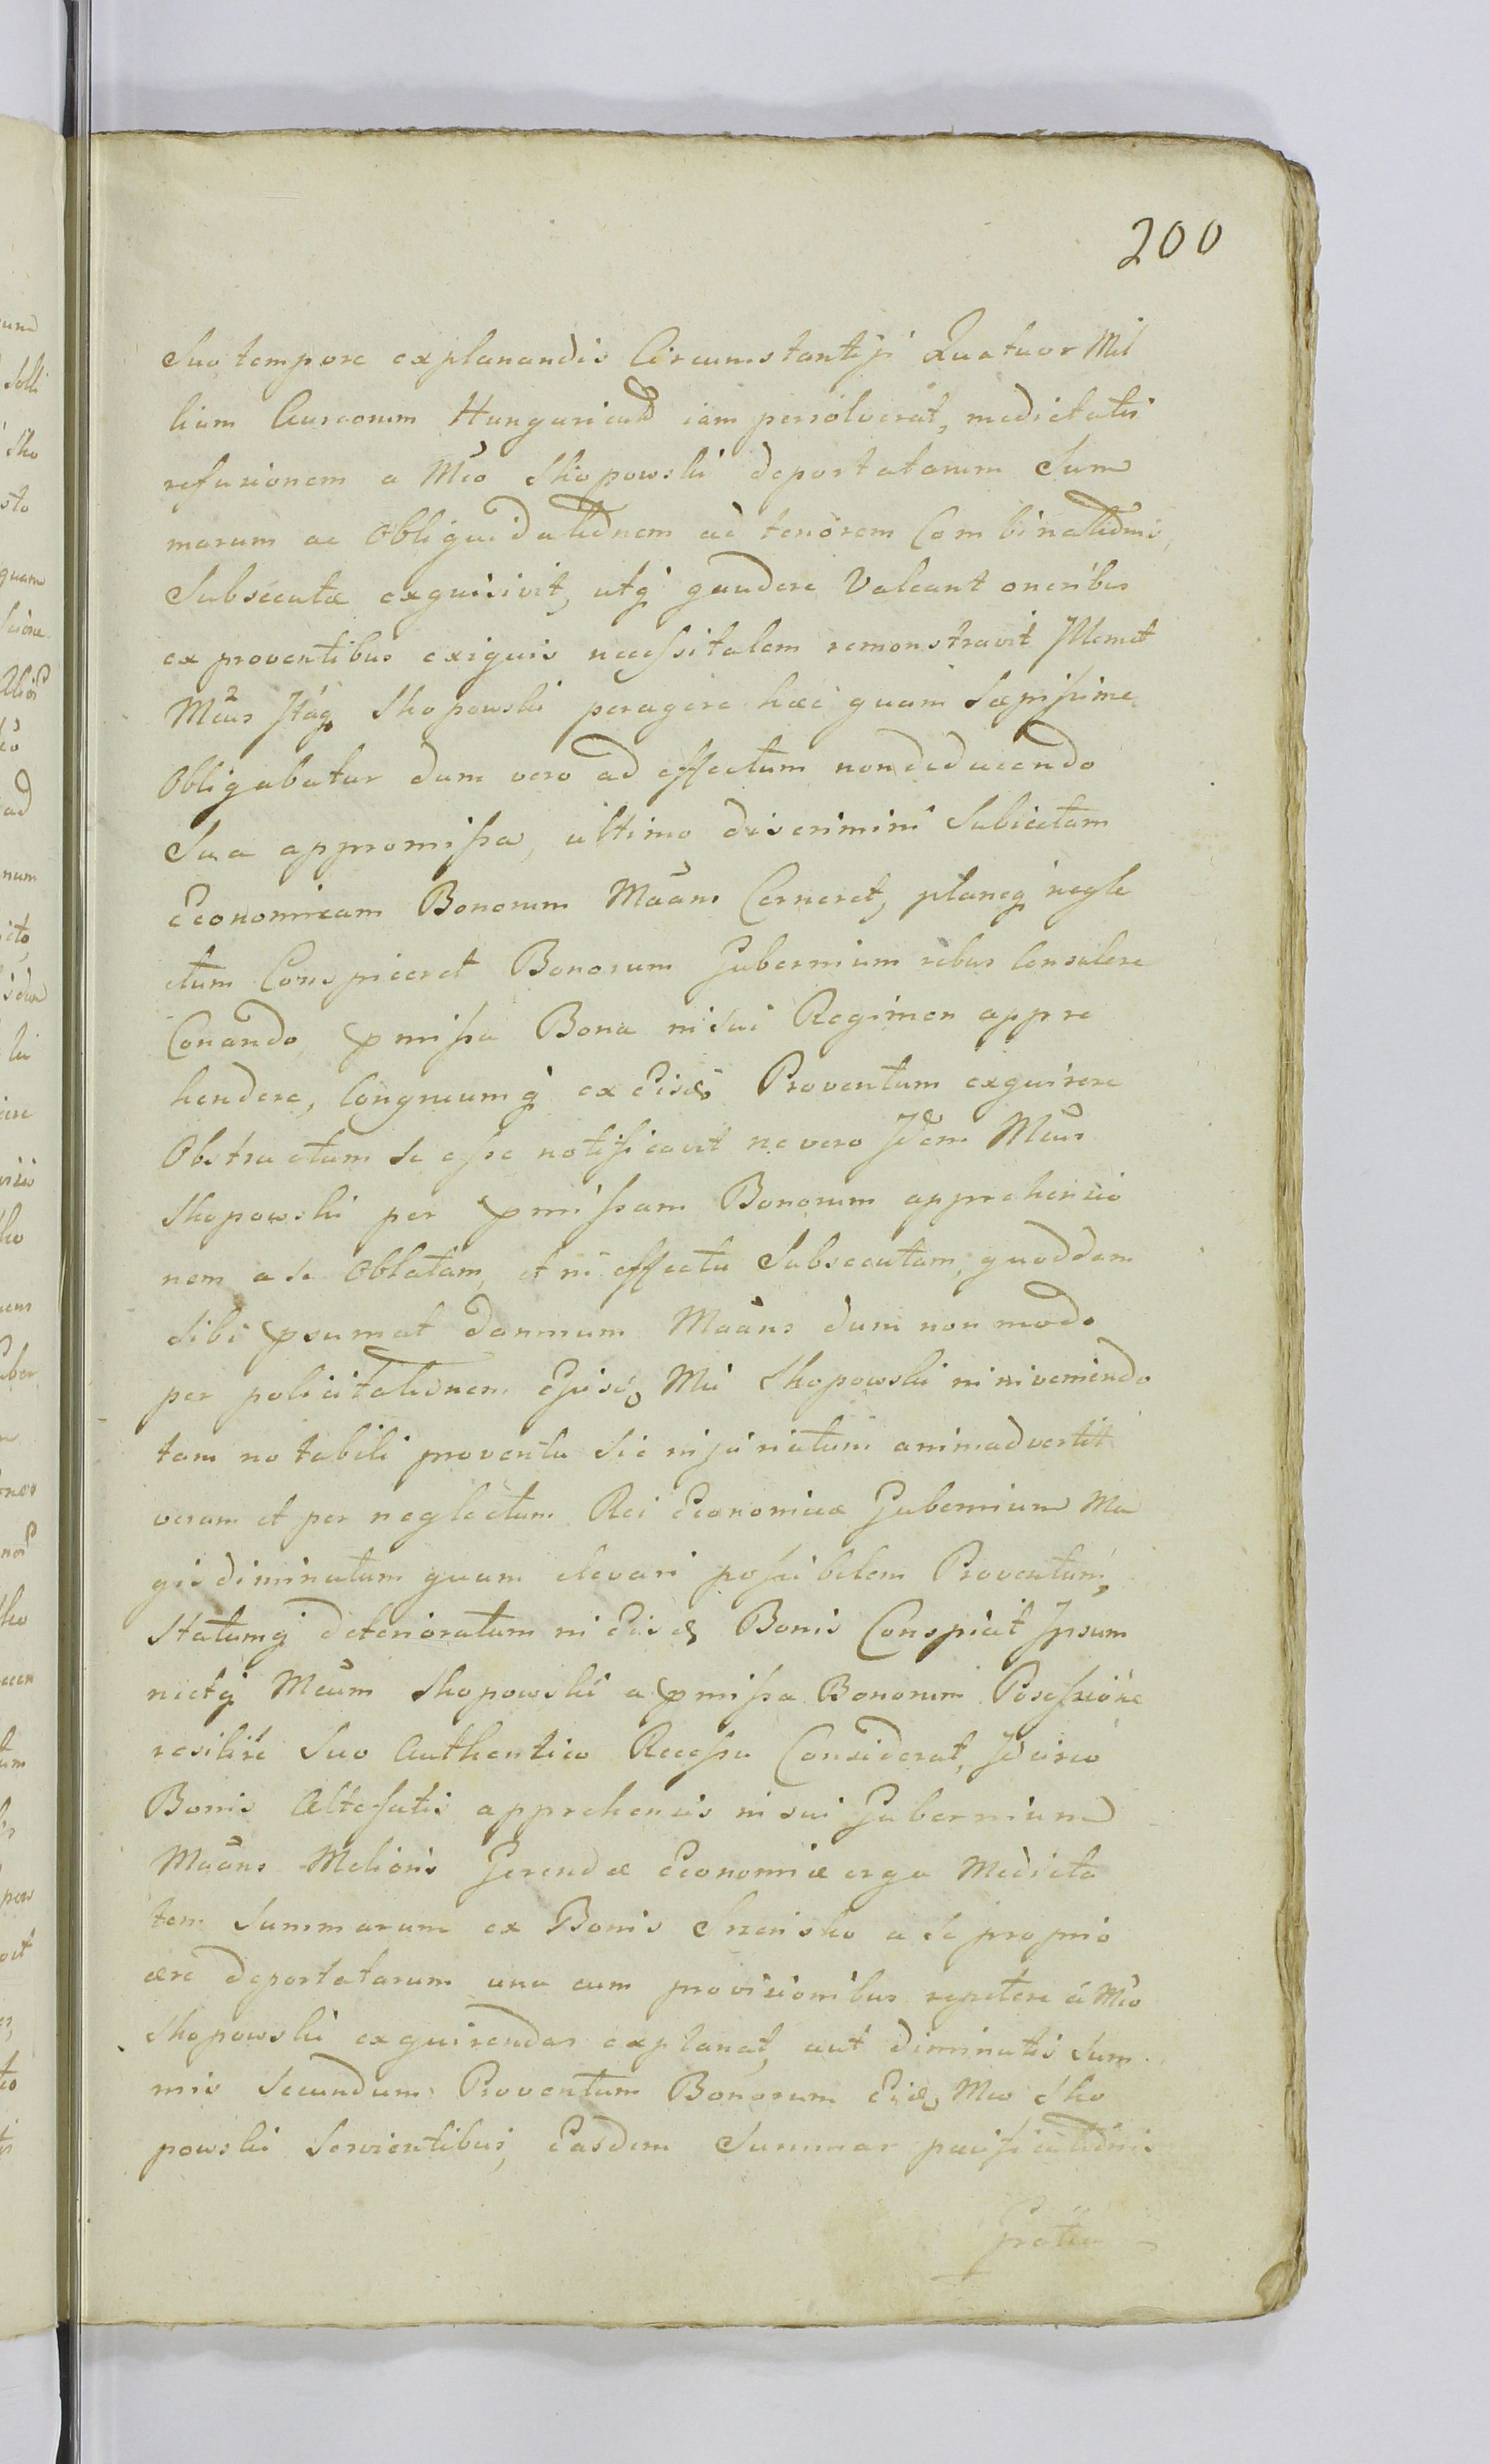 200
Suo tempore explanandis Circumstantijs Quatuor Mil
lium Aureorum Hungaricaliũ iam persolverat, medietatis
refusionem a Mco Skopowski deportatarum Sum
marum ac Obliquidationem ad tenorem Combinationis,
Subsecutæ exquisivit, utq gaudere Valeant oneribus
ex proventibus exiguis necessitatem remonstravit Memet
Mcus Itaq Skopowski peragere hæc quam Sæpissime
Obligabatur dum vero ad effectum non deducendo
Sua appromissa, ultimo discrimini Subiectam
Economicam Bonorum Mãans Cerneret, planeq negle
ctum Conspiceret Bonorum Gubernium rebus Consulere
Conando, pmissa Bona in sui Regimen appre
hendere, Congruumq ex Eisd Proventum exquirere
Obstructum se esse notificavit ne vero Idem Mcus
Skopowski per pmissam Bonorum apprehensio
nem a se Oblatam, et in effectu Subsecutam, quoddam
Sibi psumat damnum Mãans dum non modo
per policitationem Ejusd Mci Skopowski in inveniendo
tam notabili proventu Sic injuriatum animadvertit
verum et per neglectum Rei Economicæ Gubernium Ma
gis diminutum quam elevari possibilem Proventum,
Statumq deterioratum in Eisd Bonis Conspicit Ipsum
metq Mcum Skopowski a pmissa Bonorum Possessione
resilire Suo Authentico Recessu Considerat, Idcirco
Bonis Altefatis apprehensis in sui Gubernium
Mãans Melioris Gerendæ Economiæ erga Medieta
tem Summarum ex Bonis a Se proprio
ære deportatarum una cum provisionibus repetere á Mco
Skopowski exquirendas explanat, aut diminutis Sum
mis Secundum Proventum Bonorum Eid Mco Sko
powski Servientibus, Easdem Summas pacificationis